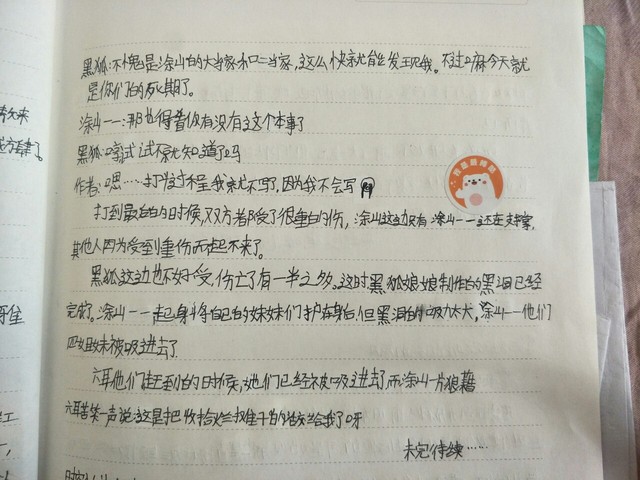 黑狐:不愧是涂山的大当家和二当家,这么快就能发现我。不过嘛今天就
是你们的死期了。
涂山一一:那也得看你有没有这个本事了
黑狐:嘚试试不就知道了吗
作者:嗯……打怪过程我就不写,因为我不会写
打到最后的时候,双方都受了很重的伤,涂山这边只有涂山一一还在支撑,
其他人因为受到重伤而起不来了。
黑狐这边也不好受,伤亡了有一半之多。这时黑狐娘娘制作的黑洞已经
完成了。涂山一一起身将自己的妹妹们护在身后,但黑洞的吸力太大,涂山一一他们
四姐妹被吸进去了
六耳他们赶到的时候,她们已经被吸进去了,而涂山一片狼藉
六耳苦笑一声说:这是把收拾烂摊子的活交给我了呀
未完待续……
奔久来
了。